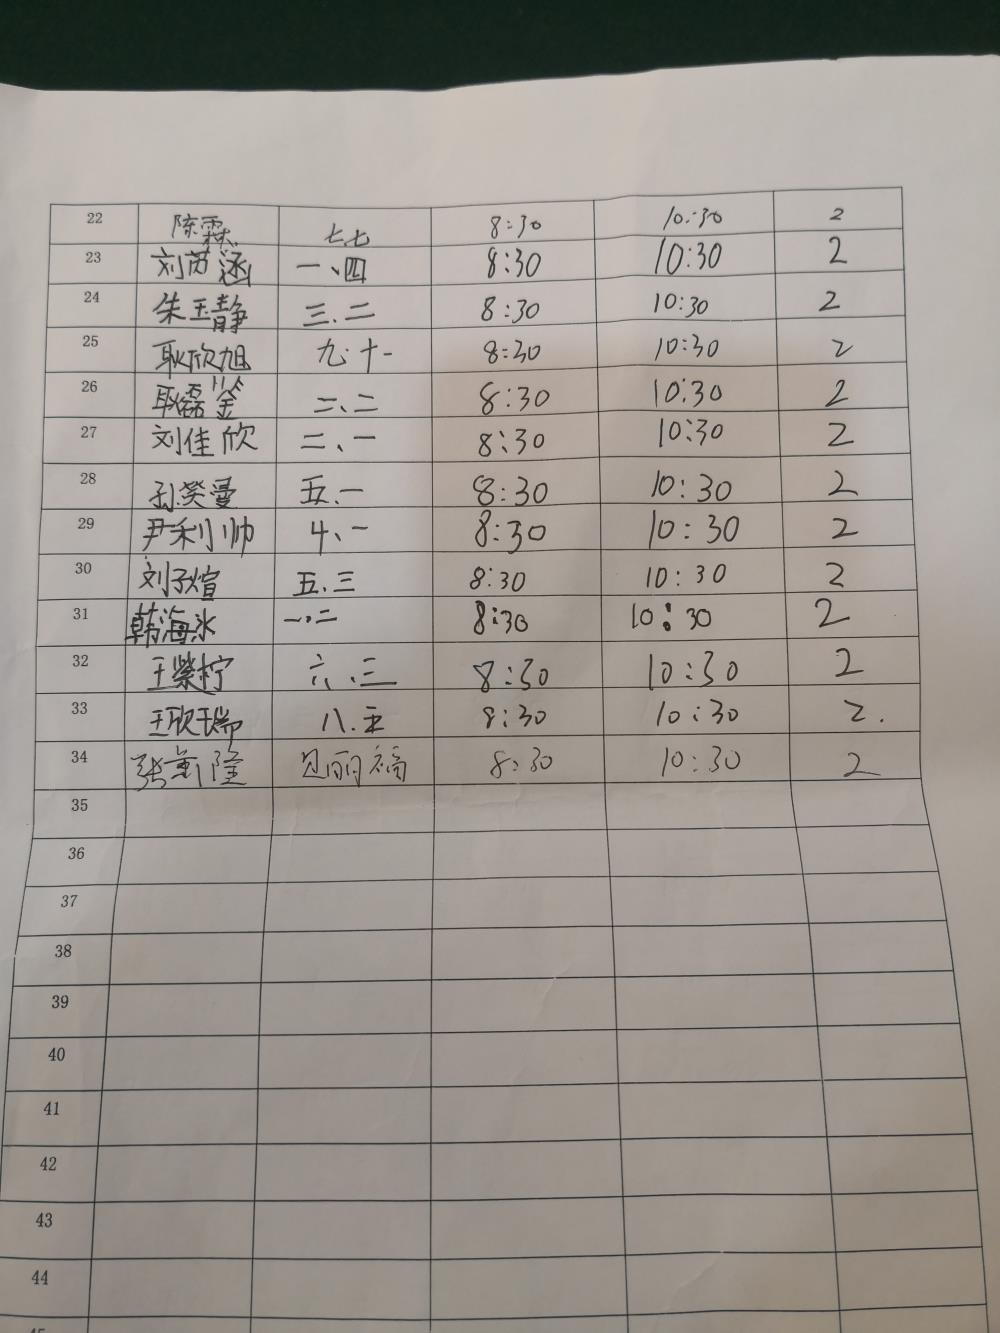 22 陈霖 七七 8:30 10:30 2
23 刘芮涵 一、四 8:30 10:30 2
24 朱玉静 三.二 8:30 10:30 2
25 耿欣旭 九.十一 8:30 10:30 2
26 耿磊鉴 二、二 8:30 10:30 2
27 刘佳欣 二、一 8:30 10:30 2
28 孙癸曼 五.一 8:30 10:30 2
29 尹利帅 4、一 8:30 10:30 2
30 刘子煊 五.三 8:30 10:30 2
31 韩海冰 一.二 8:30 10:30 2
32 王荣柠 六、三 8:30 10:30 2
33 王欣瑞 八.五 8:30 10:30 2.
34 张 隆 见丽福 8:30 10:30 2
35
36
37
38
39
40
41
42
43
44